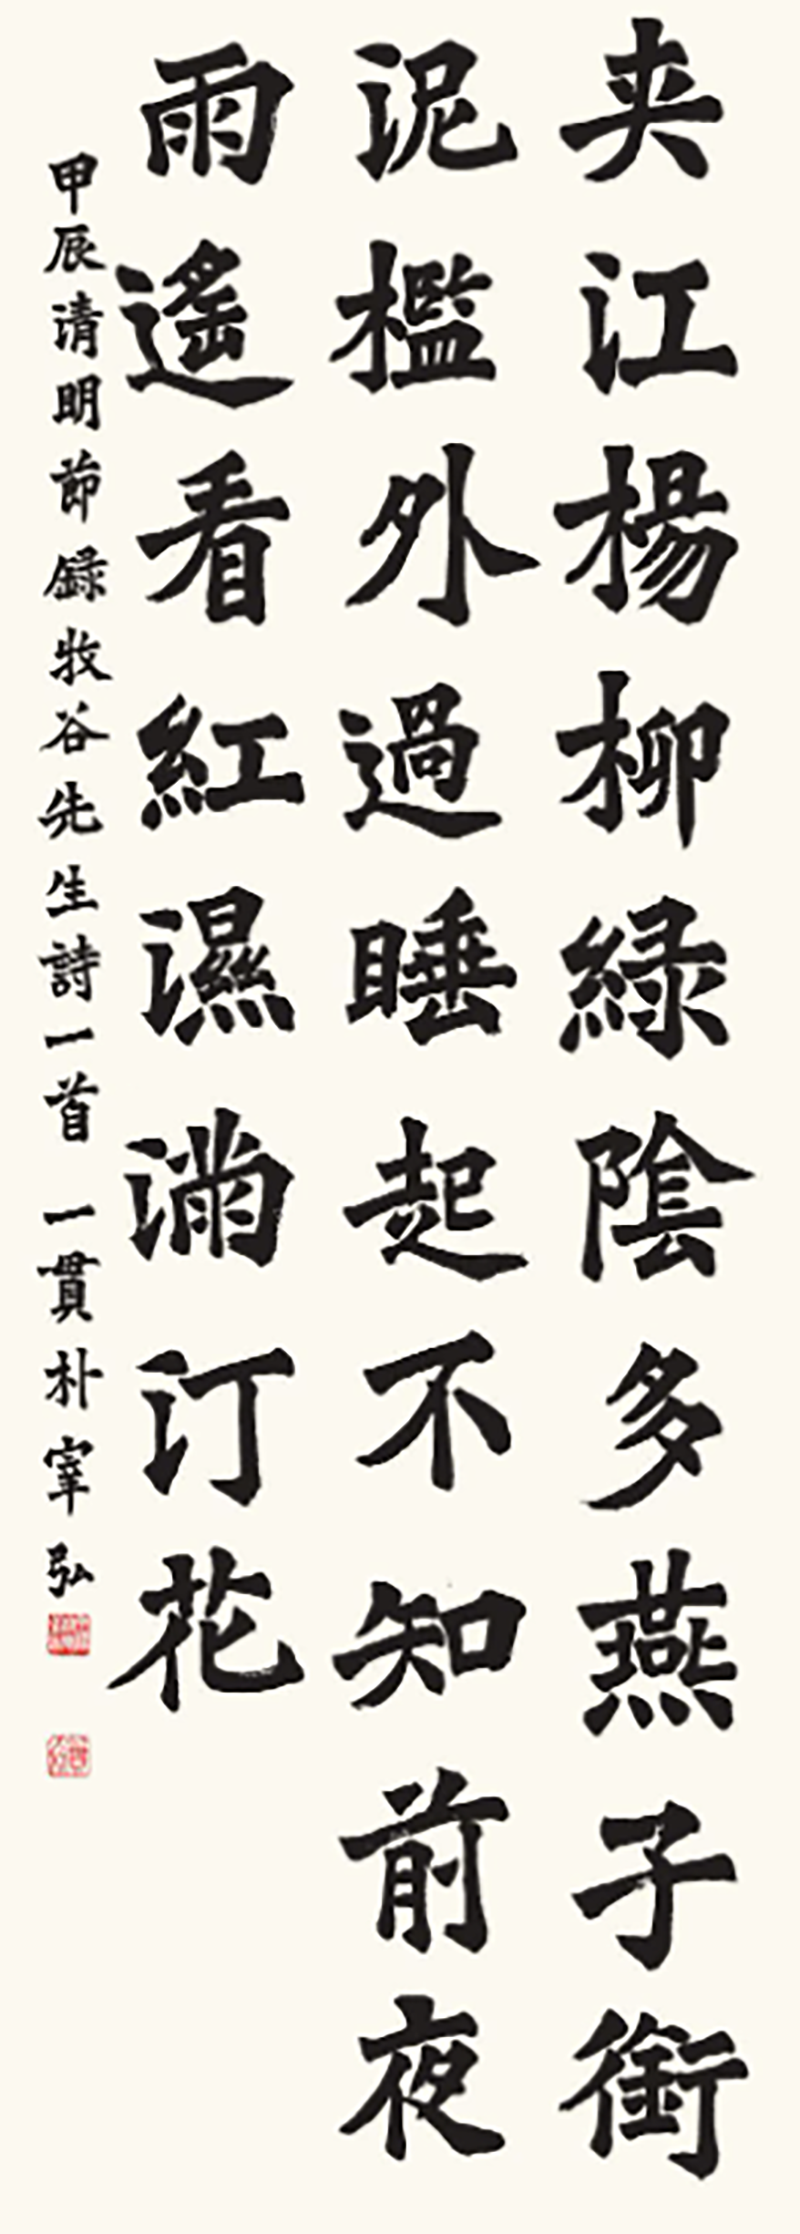 夹江楊柳綠陰多燕子銜
泥檻外過睡起不知前夜
雨遙看紅濕滿汀花
甲辰清明節錄牧谷先生詩一首 一貫朴宰弘